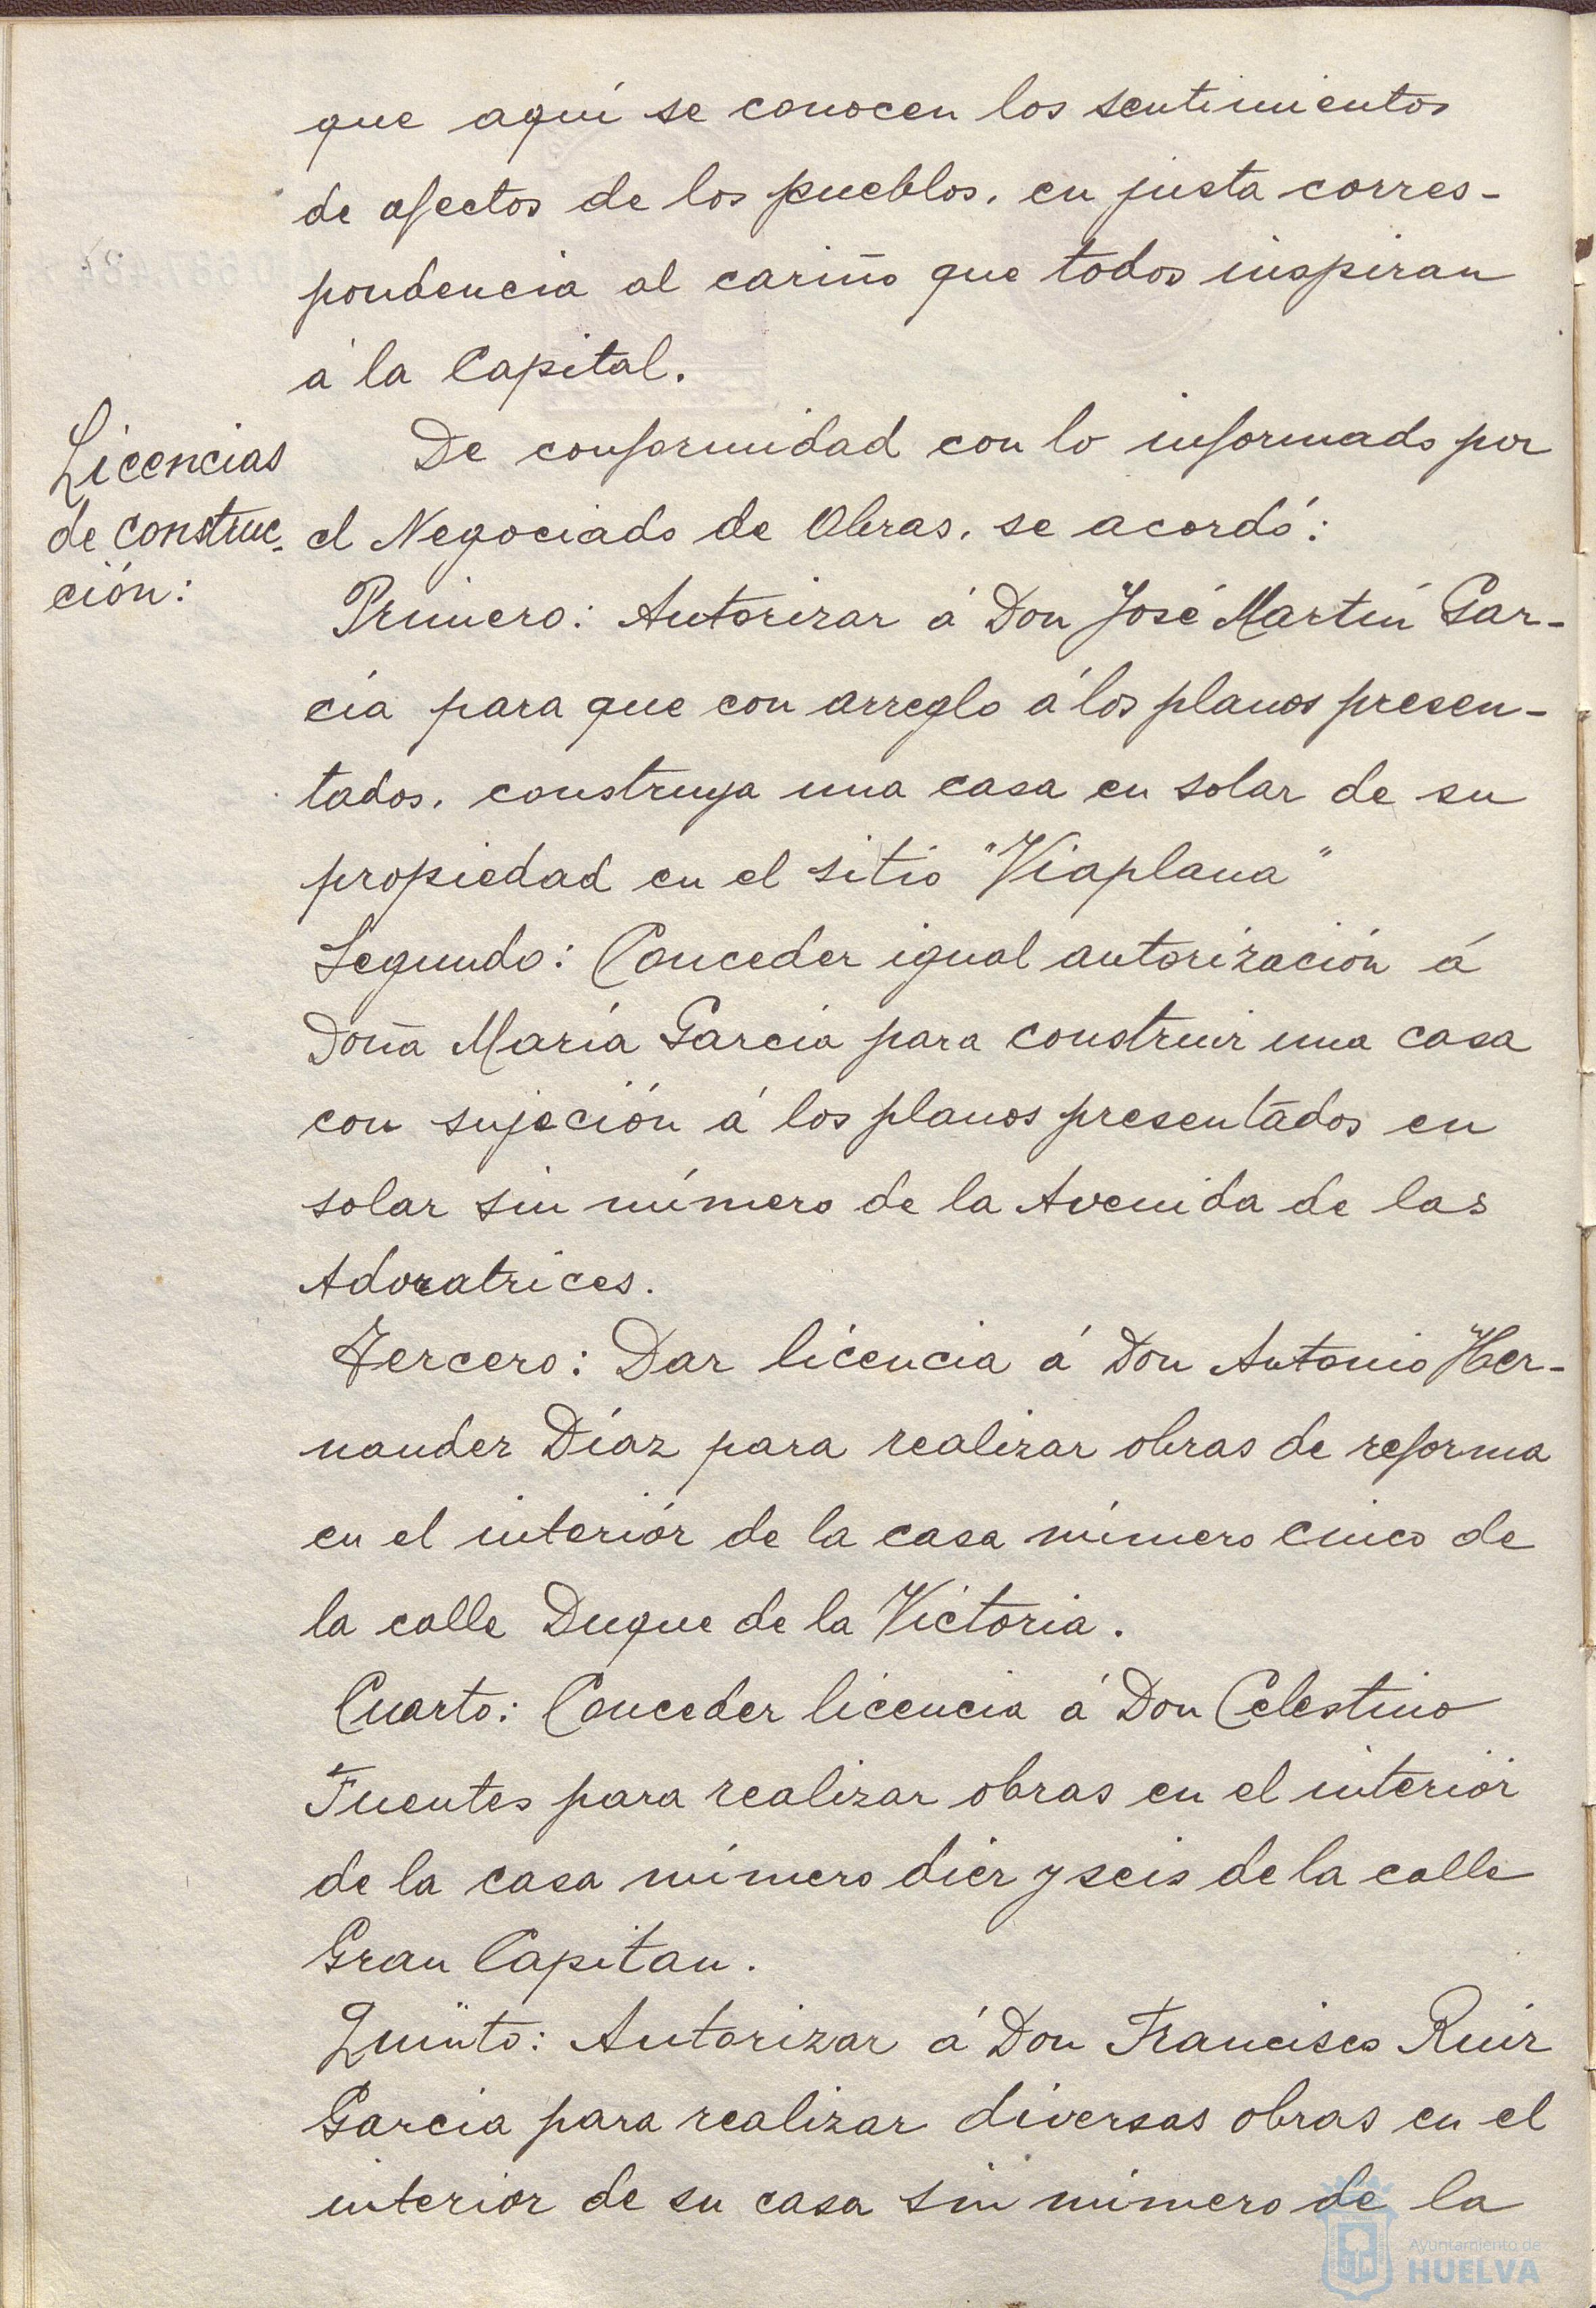 que aquí se conocen los sentimientos
de afectos de los pueblos, en justa corres-
pondencia al cariño que todos inspiran
á la Capital.
Licencias
de construc-
ción:
De conformidad con lo informado por
el Negociado de Obras, se acordó:
Primero: Autorizar á Don José Martín Gar-
cía para que con arreglo á los planos presen-
tados, construya una casa en solar de su
propiedad en el sitio "Viaplana"
Segundo: Conceder igual autorización á
Doña María García para construir una casa
con sujeción á los planos presentados en
solar sin número de la Avenida de las
Adoratrices.
Tercero: Dar licencia á Don Antonio Her-
nandez Díaz para realizar obras de reforma
en el interiór de la casa número cinco de
la calle Duque de la Victoria.
Cuarto: Conceder licencia á Don Celestino
Fuentes para realizar obras en el interiór
de la casa número diez y seis de la calle
Gran Capitan.
Quinto: Autorizar á Don Francisco Ruiz
Garcia para realizar diversas obras en el
interior de su casa sin número de la
Ayuntamiento de
HUELVA